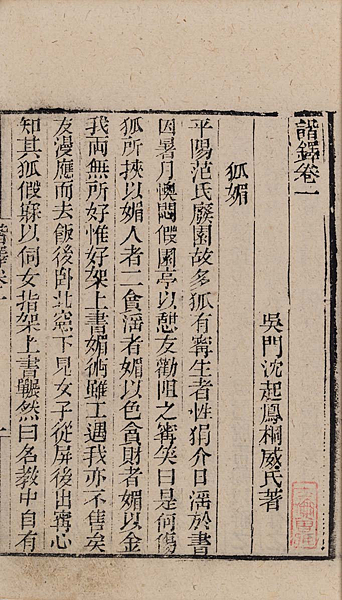 諧鐸卷一
吳門沈起鳳桐威氏著
狐媚
平陽范氏廢園故多狐有甯生者性狷介日淫於書
因暑月懊悶假園亭以憩友勸阻之甯笑曰是何傷
狐所挾以媚人者二貪淫者媚以色貪財者媚以金
我兩無所好惟好架上書媚術雖工遇我亦不售矣
友漫應而去飯後臥北窓下見女子從屏後出甯心
知其狐假寐以伺女指架上書囅然曰名教中自有
諧鐸卷一
一